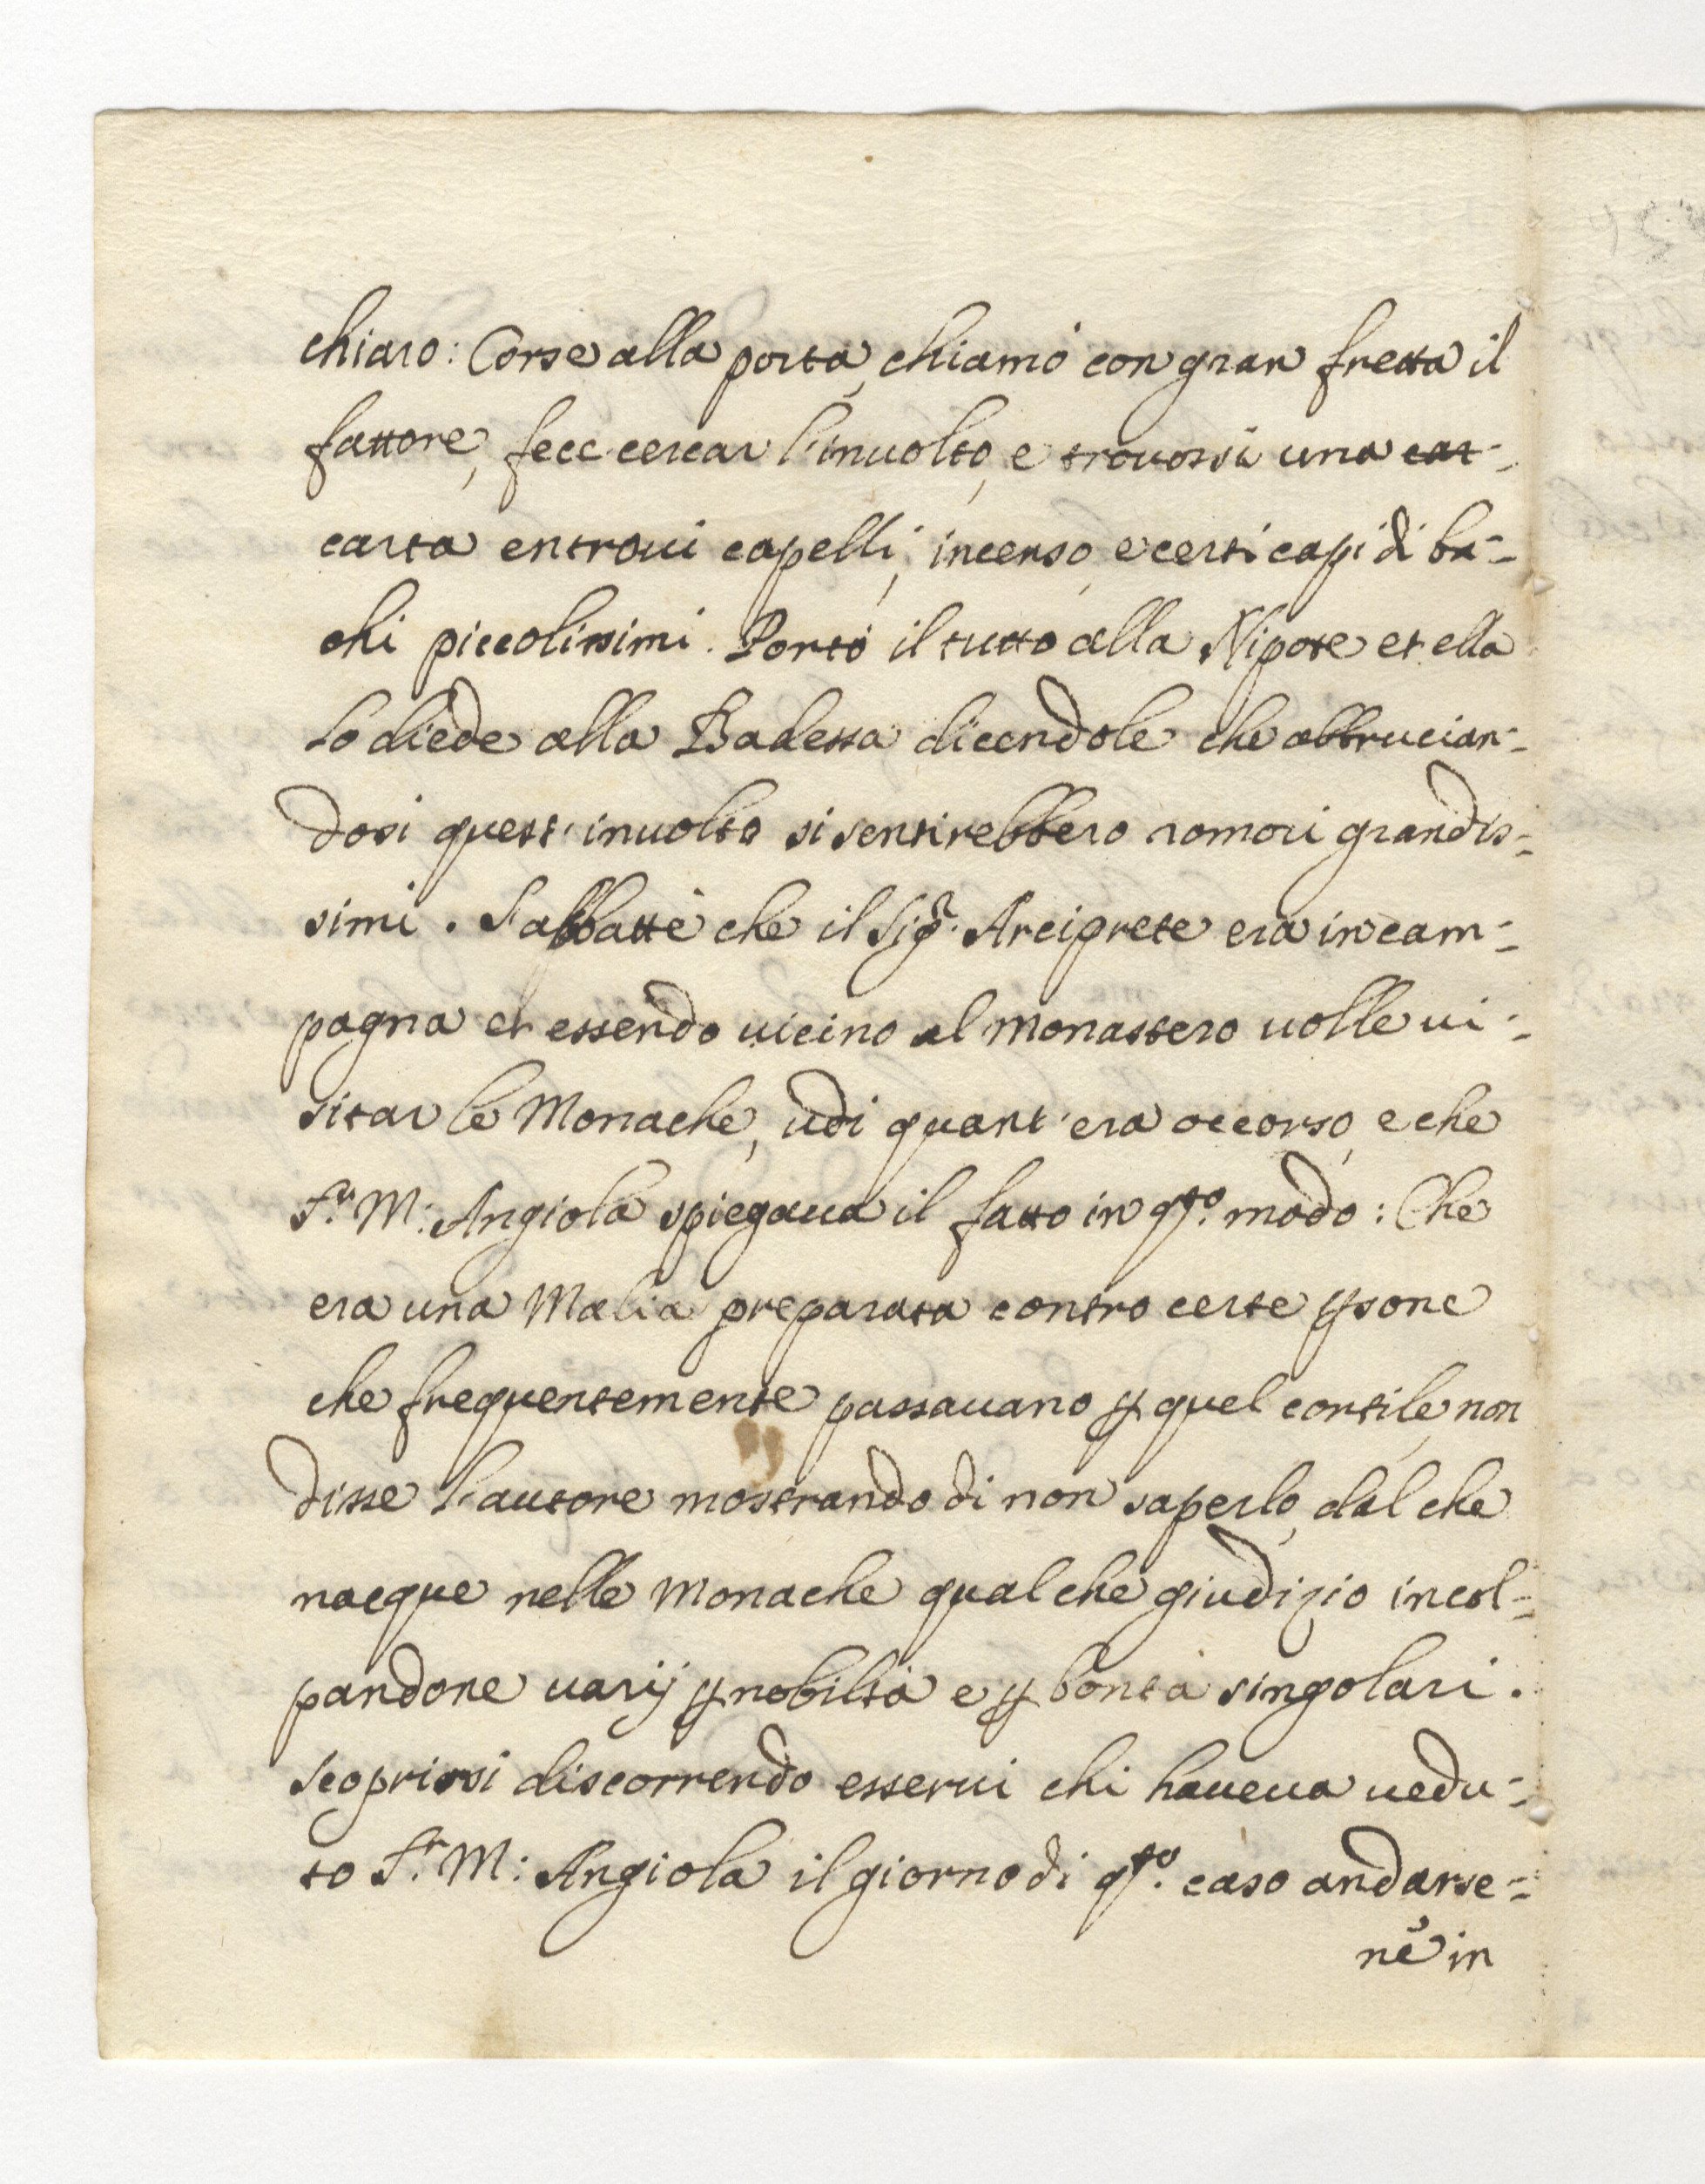 chiaro: Corse alla porta, chiamò con gran fretta il
fattore, fece cercar l'inuolto, e trouossi una car-
carta entroui capelli, incenso, e certi capi di ba-
chi piccolissimi. Portò il tutto alla Nipote et ella
lo diede alla Badessa dicendole che abbrucian-
dosi quest'inuolto si sentirebbero romori grandis-
simi. S'abbattè che il Sig.r Arciprete era in cam-
pagna et essendo uicino al monastero uolle ui-
sitar le Monache, udì quant'era occorso, e che
S.r M: Angiola spiegaua il fatto in q.to modo: Che
era una Malia preparata contro certe ꝑsone
che frequentemente passauano ꝑ quel cortile, non
disse l'autore mostrando di non saperlo, dal che
nacque nelle Monache qualche giudizio incol-
pandone uarij ꝑ nobiltà e ꝑ bontà singolari.
Scoprissi discorrendo esserui chi haueua uedu-
to S.r M: Angiola il giorno di q.to caso andarse-
nè in